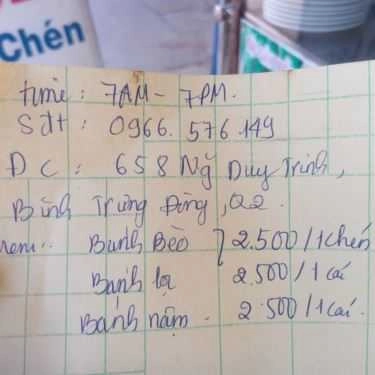 Chén
time: 7AM - 7PM.
Sđt: 0966.576.149
ĐC: 658 Ng̃ Duy Trinh,
Bình Trưng Đông, Q2.
menu.. Bánh Bèo } 2.500/1chén
Bánh lọ 2.500/1 cái
Bánh nậm. 2.500/1 cái.